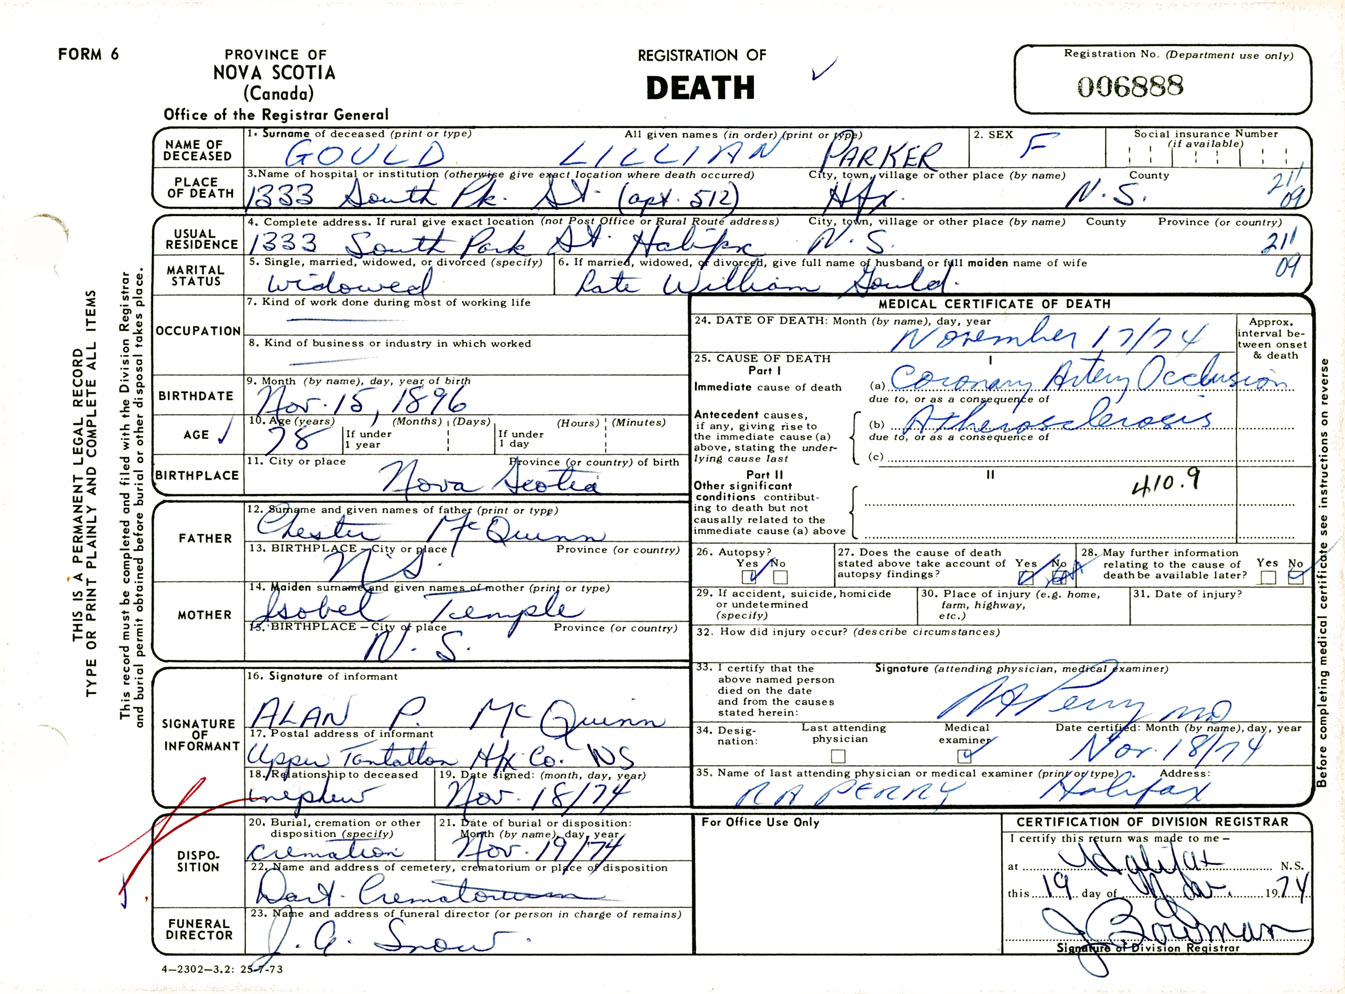 FORM 6
PROVINCE OF
NOVA SCOTIA
(Canada)
Office of the Registrar General
REGISTRATION OF
DEATH
Registration No. (Department use only)
006888
THIS IS A PERMANENT LEGAL RECORD
TYPE OR PRINT PLAINLY AND COMPLETE ALL ITEMS
This record must be completed and filed with the Division Registrar
and burial permit obtained before burial or other disposal takes place.
NAME OF
DECEASED
1. Surname of deceased (print or type) All given names (in order) (print or type)
GOULD LILLIAN PARKER
2. SEX
F
Social insurance Number
(if available)
PLACE
OF DEATH
3. Name of hospital or institution (otherwise give exact location where death occurred) City, town, village or other place (by name) County
1333 South Pk. St. (apt. 512) Hfx. N.S.
211
09
USUAL
RESIDENCE
4. Complete address. If rural give exact location (not Post Office or Rural Route address) City, town, village or other place (by name) County Province (or country)
1333 South Park St. Halifax N.S.
211
09
MARITAL
STATUS
5. Single, married, widowed, or divorced (specify)
Widowed
6. If married, widowed, or divorced, give full name of husband or full maiden name of wife
Late William Gould.
OCCUPATION
7. Kind of work done during most of working life
8. Kind of business or industry in which worked
BIRTHDATE
9. Month (by name), day, year of birth
Nov. 15, 1896
AGE
10. Age (years) (Months) (Days) (Hours) (Minutes)
78
If under
1 year
If under
1 day
BIRTHPLACE
11. City or place Province (or country) of birth
Nova Scotia
FATHER
12. Surname and given names of father (print or type)
Chester McQuinn
13. BIRTHPLACE—City or place Province (or country)
N.S.
MOTHER
14. Maiden surname and given names of mother (print or type)
Isobel Temple
15. BIRTHPLACE—City or place Province (or country)
N. S.
SIGNATURE
OF
INFORMANT
16. Signature of informant
ALAN P. McQuinn
17. Postal address of informant
Upper Tantallon Hfx Co. NS
18. Relationship to deceased
nephew
19. Date signed: (month, day, year)
Nov. 18/74
DISPO-
SITION
20. Burial, cremation or other
disposition (specify)
cremation
21. Date of burial or disposition:
Month (by name), day, year
Nov. 19/74
22. Name and address of cemetery, crematorium or place of disposition
Dart. Crematorium
FUNERAL
DIRECTOR
23. Name and address of funeral director (or person in charge of remains)
J. A. Snow.
4—2302—3.2: 25-7-73
MEDICAL CERTIFICATE OF DEATH
24. DATE OF DEATH: Month (by name), day, year
November 17/74
Approx.
interval be-
tween onset
& death
25. CAUSE OF DEATH
Part I
I
Immediate cause of death
(a) Coronary Artery Occlusion
due to, or as a consequence of
Antecedent causes,
if any, giving rise to
the immediate cause (a)
above, stating the under-
lying cause last
(b) Atherosclerosis
due to, or as a consequence of
(c)
Part II
II
Other significant
conditions contribut-
ing to death but not
causally related to the
immediate cause (a) above
410.9
26. Autopsy?
Yes No
27. Does the cause of death
stated above take account of
autopsy findings?
Yes No
28. May further information
relating to the cause of
death be available later?
Yes No
29. If accident, suicide, homicide
or undetermined
(specify)
30. Place of injury (e.g. home,
farm, highway,
etc.)
31. Date of injury?
32. How did injury occur? (describe circumstances)
33. I certify that the
above named person
died on the date
and from the causes
stated herein:
Signature (attending physician, medical examiner)
RA Perry MD
34. Desig-
nation:
Last attending
physician
Medical
examiner
Date certified: Month (by name), day, year
Nov. 18/74
35. Name of last attending physician or medical examiner (print or type) Address:
RA PERRY Halifax
For Office Use Only
CERTIFICATION OF DIVISION REGISTRAR
I certify this return was made to me —
at Halifax N.S.
this 19 day of Nov. 1974
J. Bowman
Signature of Division Registrar
Before completing medical certificate see instructions on reverse